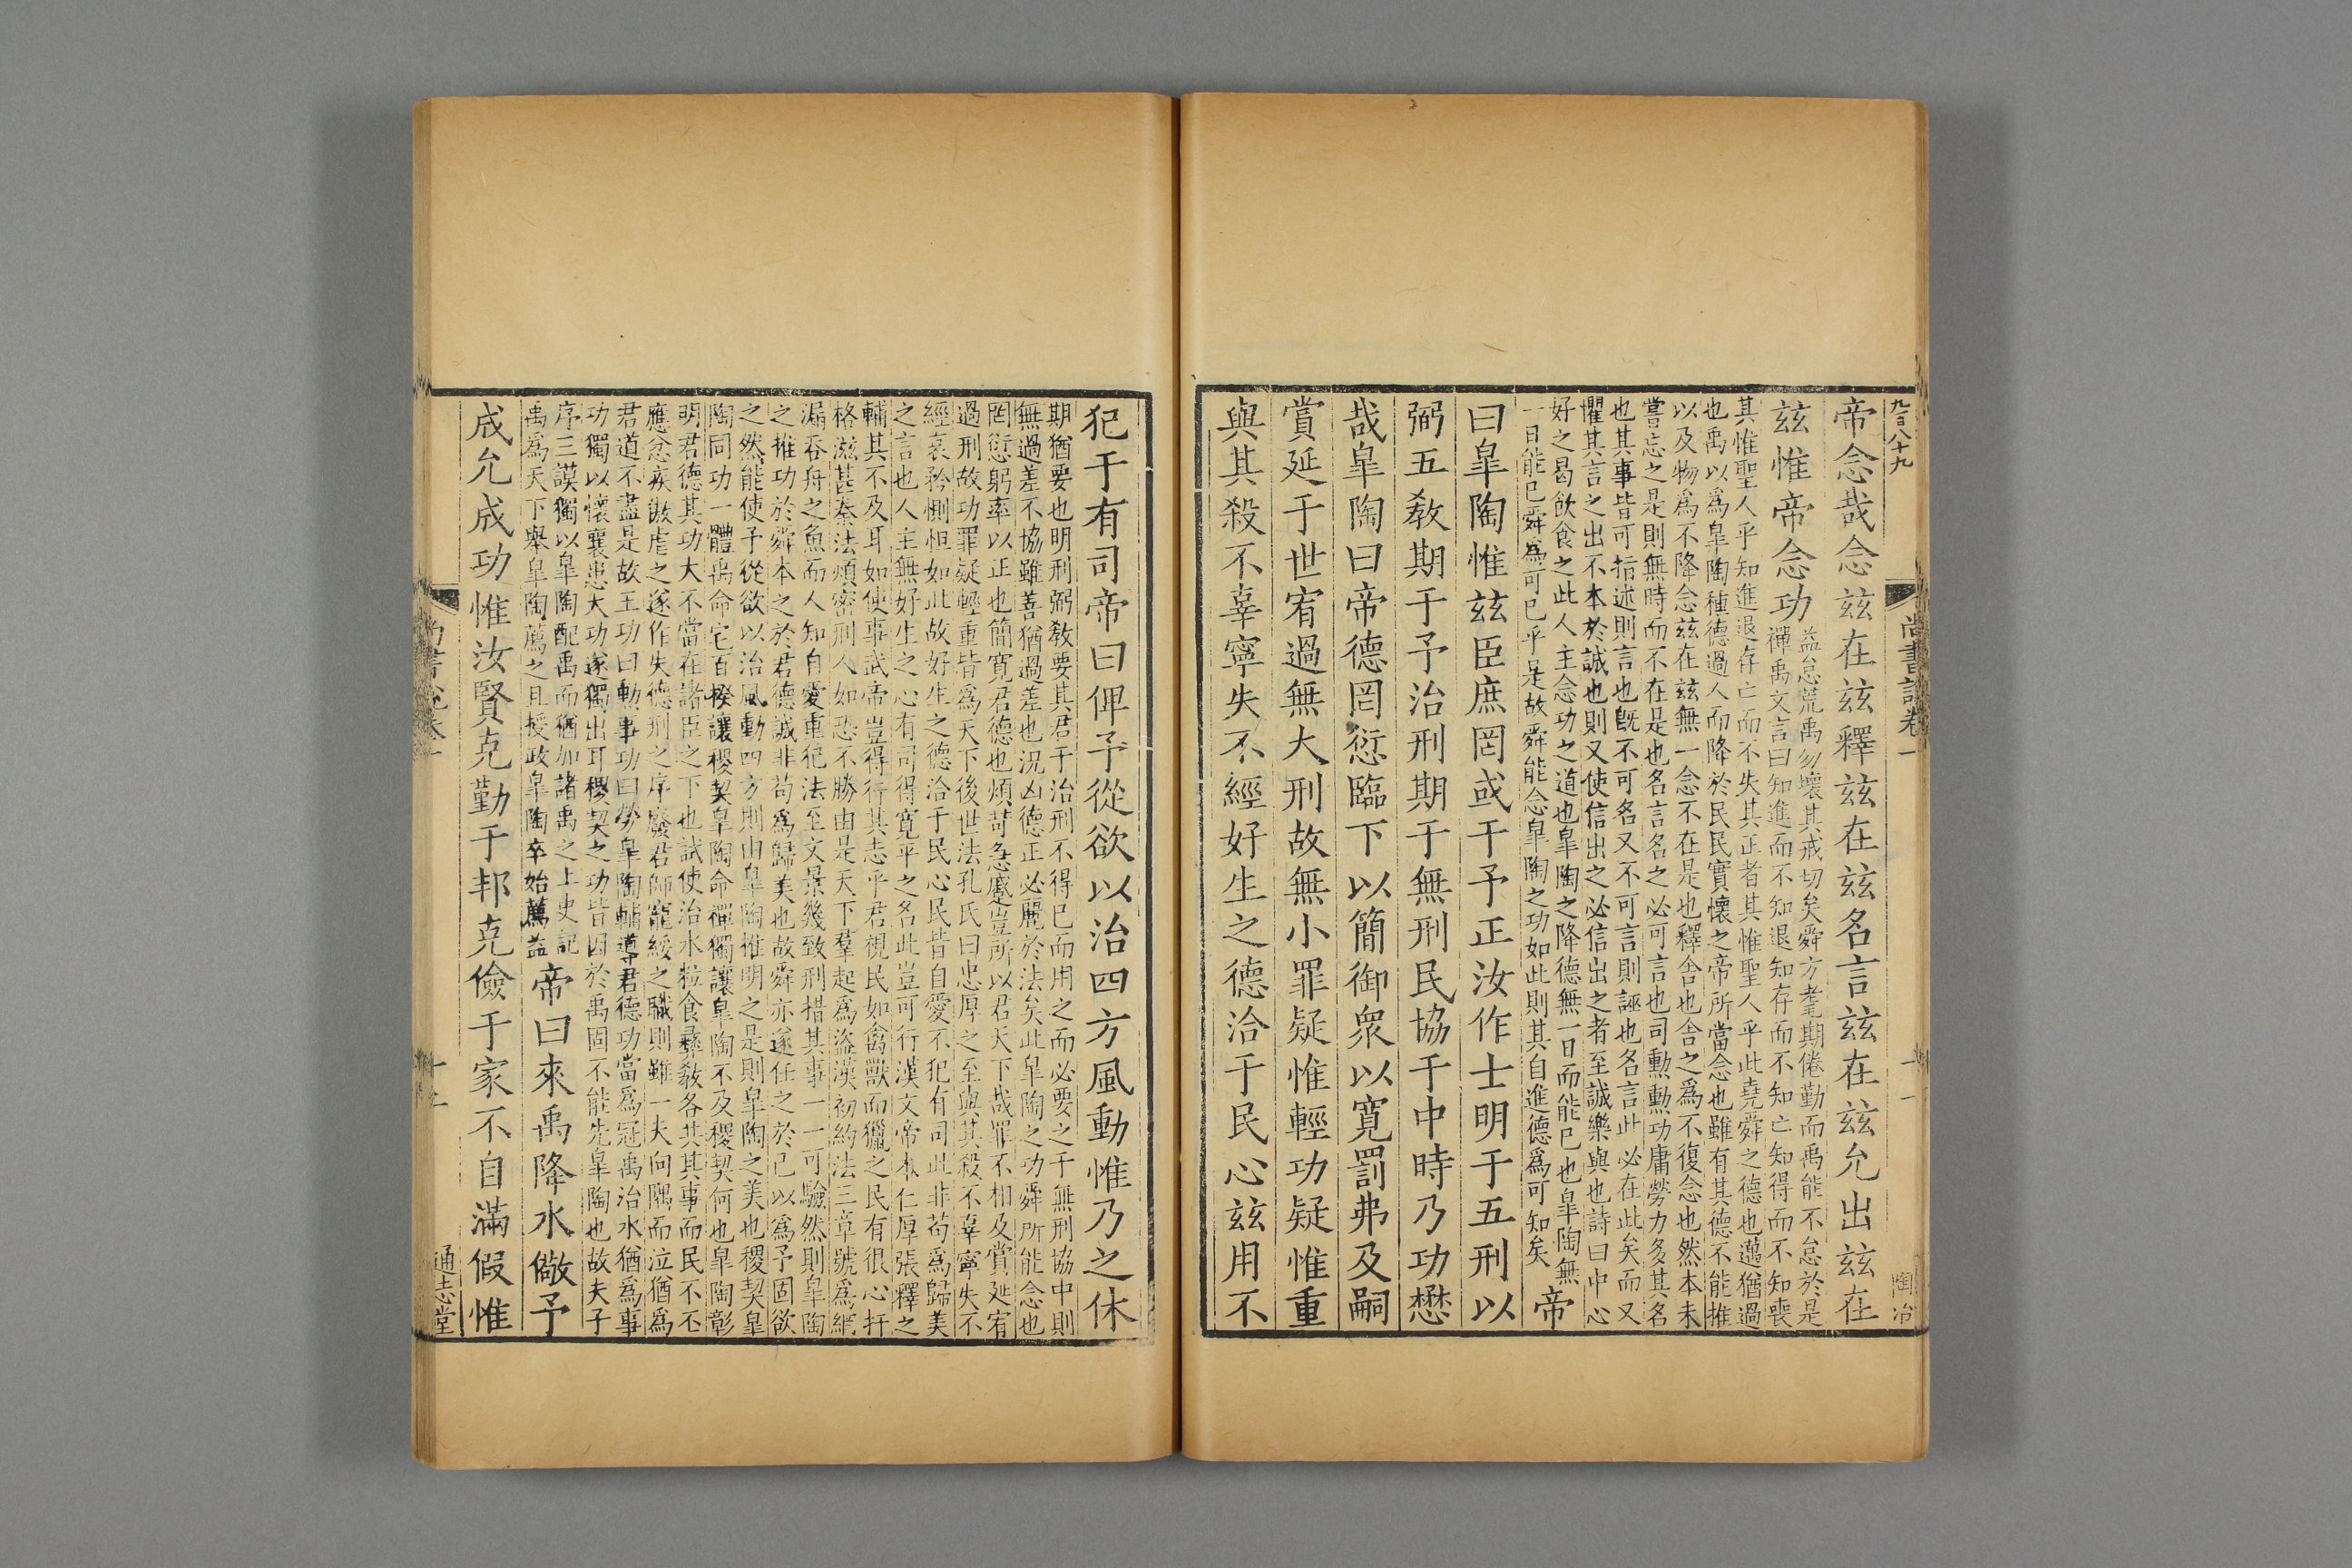 九百八十九
尚書說卷一
陶冶
帝念哉念茲在茲釋茲在茲名言茲在茲允出茲在
茲惟帝念功
益怠荒禹勿壞其戒切矣舜方耄期倦勤而禹能不怠於是
禪禹文言曰知進而不知退知存而不知亡知得而不知喪
其惟聖人乎知進退存亡而不失其正者其惟聖人乎此堯舜之德也邁猶過
也禹以爲皐陶種德過人而降於民民實懷之帝所當念也雖有其德不能推
以及物爲不降念茲在茲無一念不在是也釋舍也舍之爲不復念也然本未
嘗忘之是則無時而不在是也名言名之必可言也司勲勲功庸勞力多其名
也其事皆可指述則言也旣不可名又不可言則誣也名言此必在此矣而又
懼其言之出不本於誠也則又使信出之必信出之者至誠樂與也詩曰中心
好之曷飲食之此人主念功之道也皐陶之降德無一日而能已也皐陶無
一日能已舜爲可已乎是故舜能念皐陶之功如此則其自進德爲可知矣
帝
曰皐陶惟茲臣庶罔或干予正汝作士明于五刑以
弼五敎期于予治刑期于無刑民協于中時乃功懋
哉皐陶曰帝德罔愆臨下以簡御衆以寬罰弗及嗣
賞延于世宥過無大刑故無小罪疑惟輕功疑惟重
與其殺不辜寧失不經好生之德洽于民心茲用不
犯于有司帝曰俾予從欲以治四方風動惟乃之休
期猶要也明刑弼敎要其君于治刑不得已而用之而必要之于無刑協中則
無過差不協雖善猶過差也況凶德正必麗於法矣此皐陶之功舜所能念也
罔愆躬率以正也簡寬君德也煩苛急蹙豈所以君天下哉罪不相及賞延宥
過刑故功罪疑輕重皆爲天下後世法孔氏曰忠厚之至與其殺不辜寧失不
經哀矜惻怛如此故好生之德洽于民心民皆自愛不犯有司此非苟爲歸美
之言也人主無好生之心有司得寬平之名此豈可行漢文帝本仁厚張釋之
輔其不及耳如使事武帝豈得行其志乎君視民如禽獸而獵之民有很心扞
格滋甚秦法煩密刑人如恐不勝由是天下羣起爲盜漢初約法三章號爲網
漏吞舟之魚而人知自愛重犯法至文景幾致刑措其事一一可驗然則皐陶
之推功於舜本之於君德誠非苟爲歸美也故舜亦遂任之於己以爲予固欲
之然能使予從欲以治風動四方則由皐陶惟明之是則皐陶之美也稷契皐
陶同功一體禹命宅百揆讓稷契皐陶命禪獨讓皐陶不及稷契何也皐陶彰
明君德其功大不當在諸臣之下也試使治水粒食彞敎各共其事而民不丕
應忿疾傲虐之遂作失德刑之序廢君師寵綏之職則雖一夫向隅而泣猶爲
君道不盡是故王功曰勲事功曰勞皐陶輔導君德功當爲冠禹治水猶爲事
功獨以懷襄患大功遂獨出耳稷契之功皆因於禹固不能先皐陶也故夫子
序三謨獨以皐陶配禹而猶加諸禹之上史記
禹爲天下舉皐陶薦之且授政皐陶卒始薦益
帝曰來禹降水儆予
成允成功惟汝賢克勤于邦克儉于家不自滿假惟
尚書說卷一
通志堂